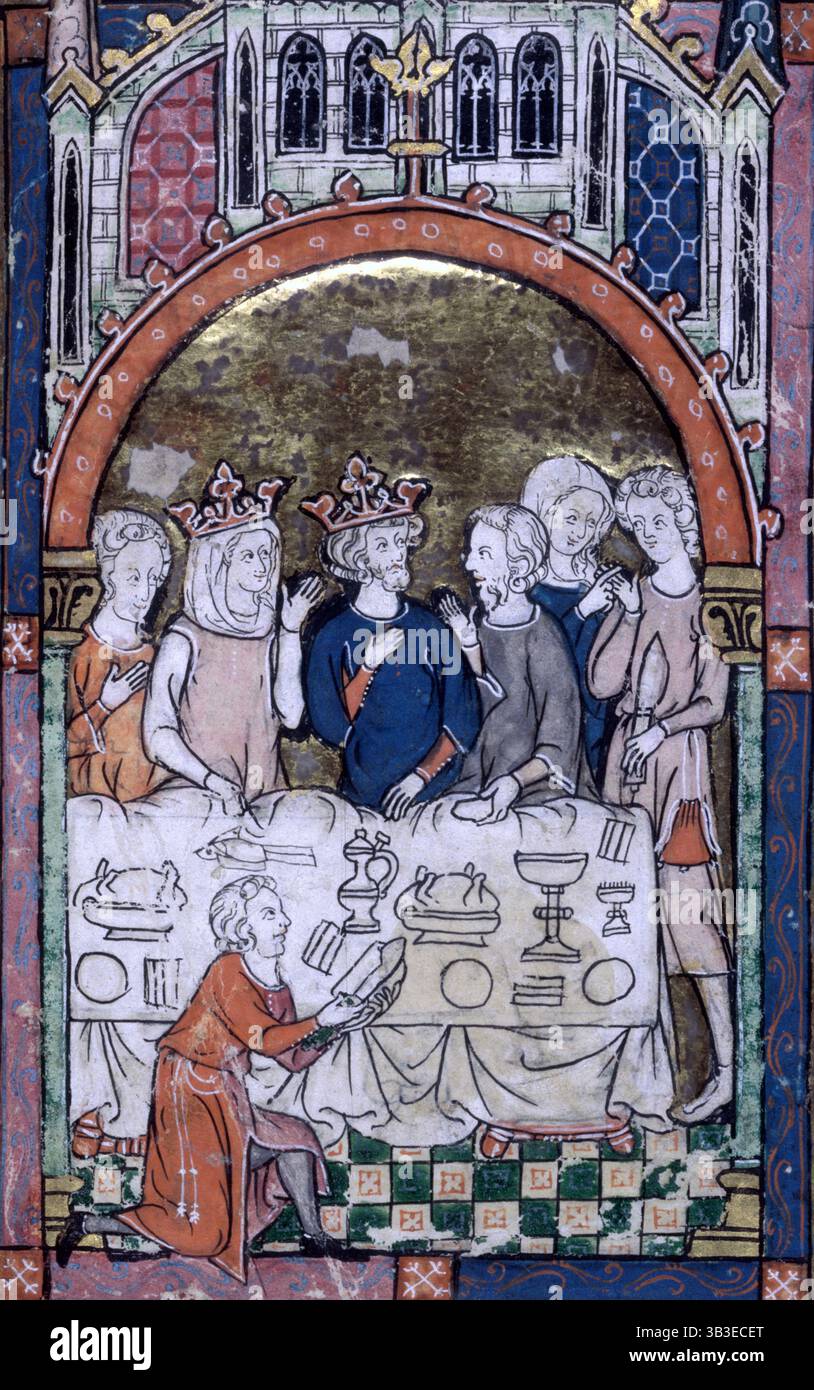 alamy
Image ID: 2B3ECET
www.alamy.com